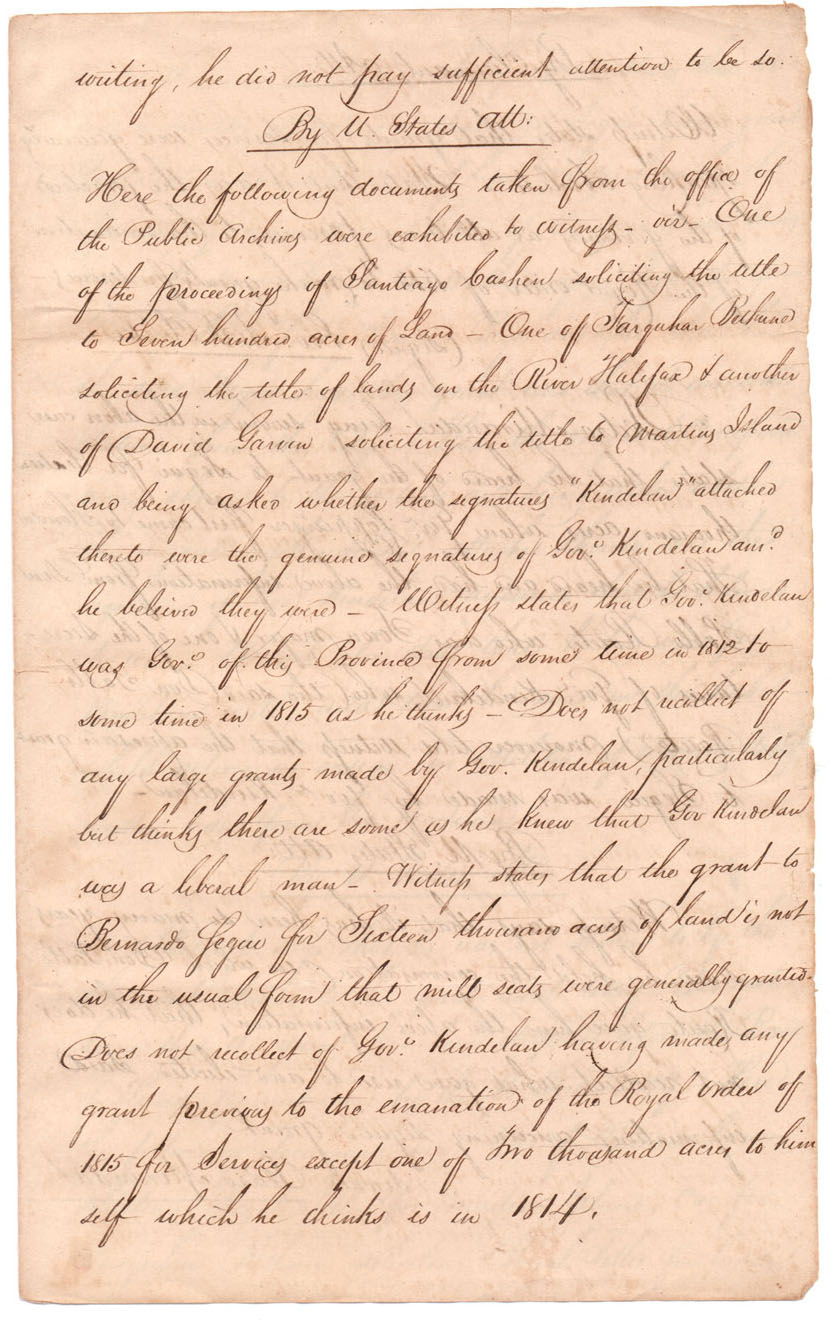 writing, he did not pay sufficient attention to be so.
By U. States Att:
Here the following documents taken from the office of
the Public Archives were exhibited to witness – viz – One
of the proceedings of Santiago Cashen soliciting the title
to Seven hundred acres of Land – One of Farquhar Bethune
soliciting the title of lands on the River Halifax & another
of David Garvin soliciting the title to Martins Island
and being asked whether the signatures "Kindelan" attached
thereto were the genuine signatures of Govr. Kindelan ansd.
he believed they were – Witness states that Govr. Kindelan
was Govr. of this Province from some time in 1812 to
some time in 1815 as he thinks – Does not recollect of
any large grants made by Gov. Kindelan, particularly
but thinks there are some as he knew that Gov Kindelan
was a liberal man – Witness states that the grant to
Bernardo Segui for Sixteen thousand acres of land is not
in the usual form that mill seats were generally granted –
Does not recollect of Govr. Kindelan having made any
grant previous to the emanation of the Royal order of
1815 for Services except one of Two thousand acres to him
self which he thinks is in 1814.